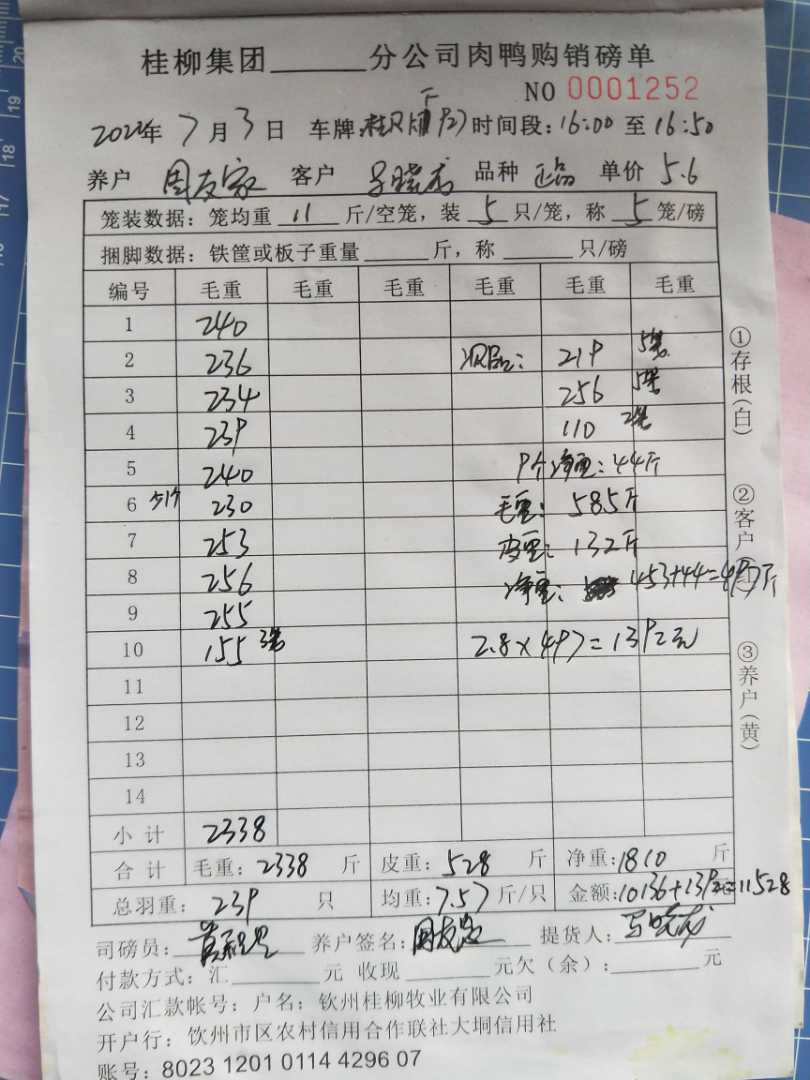 桂柳集团______分公司肉鸭购销磅单
NO 0001252
2022年 7 月 3 日 车牌: 时间段:16:00 至 16:50
养户 周友家 客户 晓龙 品种 正品 单价 5.6
笼装数据:笼均重 11 斤/空笼,装 5 只/笼,称 5 笼/磅
捆脚数据:铁筐或板子重量______斤,称______只/磅
编号 毛重 毛重 毛重 毛重 毛重 毛重
1 240
2 236 次品: 219 5笼
3 234 256 5笼
4 239 110 2笼
5 240 9个净重:44斤
6 少1个 230 毛重: 585斤
7 253 皮重: 132斤
8 256 净重: 453+44=497斤
9 255
10 155 3笼 2.8×497=1392元
11
12
13
14
小计 2338
合计 毛重:2338 斤 皮重:528 斤 净重:1810 斤
总羽重: 239 只 均重:7.57 斤/只 金额:10136+1392=11528
①存根(白)
②客户
③养户(黄)
司磅员: 养户签名:周友家 提货人: 晓龙
付款方式:汇______元 收现______元欠(余):______元
公司汇款帐号:户名:钦州桂柳牧业有限公司
开户行:饮州市区农村信用合作联社大垌信用社
账号:8023 1201 0114 4296 07